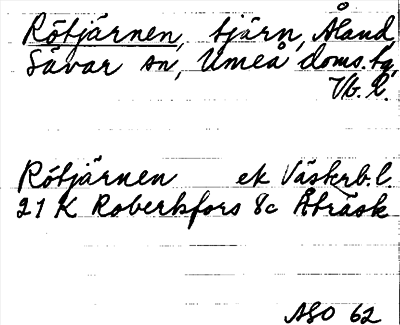 Rötjärnen, tjärn, Åland
Sävar sn, Umeå doms. tg,
Vb. l.
Rötjärnen ek Västerb. l.
21 K Robertsfors 8c Åträsk
ASO 62